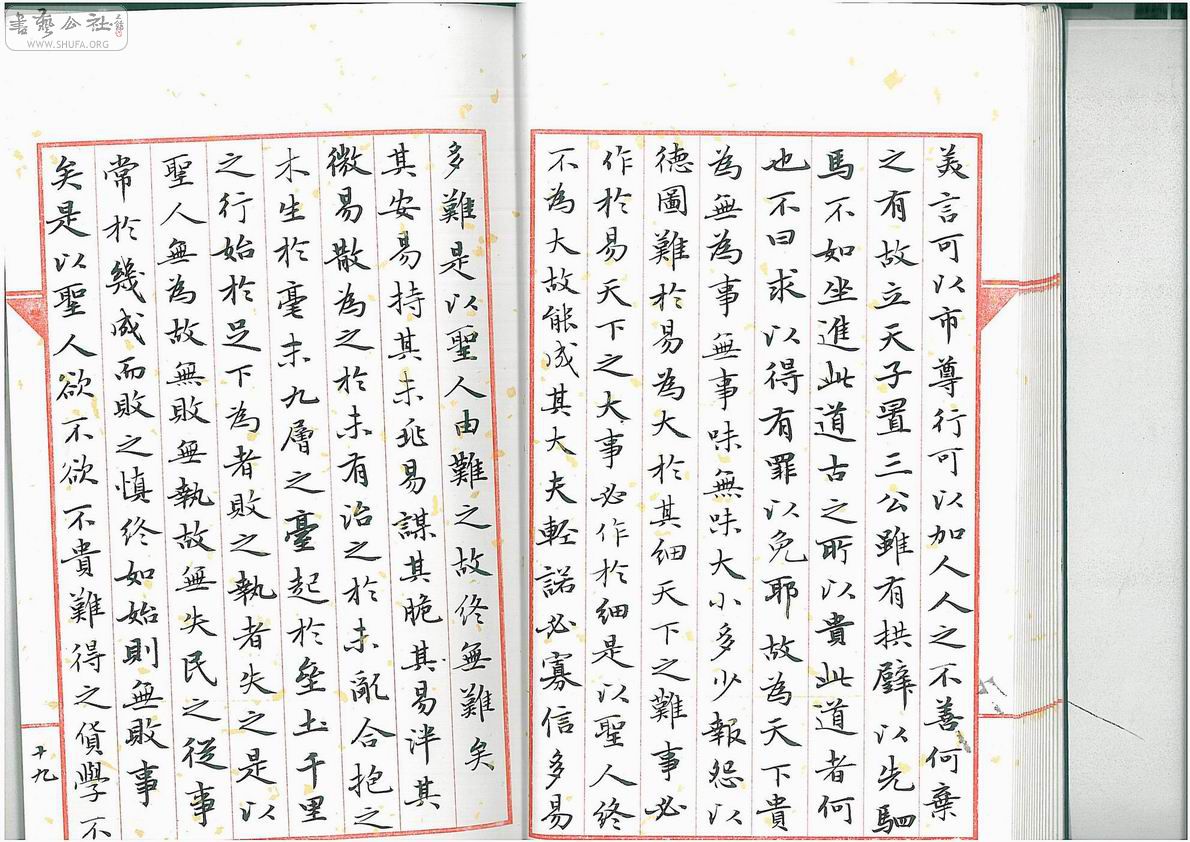 書藝公社
WWW.SHUFA.ORG
美言可以市尊行可以加人人之不善何棄
之有故立天子置三公雖有拱璧以先駟
馬不如坐進此道古之所以貴此道者何
也不曰求以得有罪以免耶故為天下貴
為無為事無事味無味大小多少報怨以
德圖難於易為大於其細天下之難事必
作於易天下之大事必作於細是以聖人終
不為大故能成其大夫輕諾必寡信多易
多難是以聖人由難之故終無難矣
其安易持其未兆易謀其脆其易泮其
微易散為之於未有治之於未亂合抱之
木生於毫末九層之臺起於壘土千里
之行始於足下為者敗之執者失之是以
聖人無為故無敗無執故無失民之從事
常於幾成而敗之慎終如始則無敗事
矣是以聖人欲不欲不貴難得之貨學不
十九